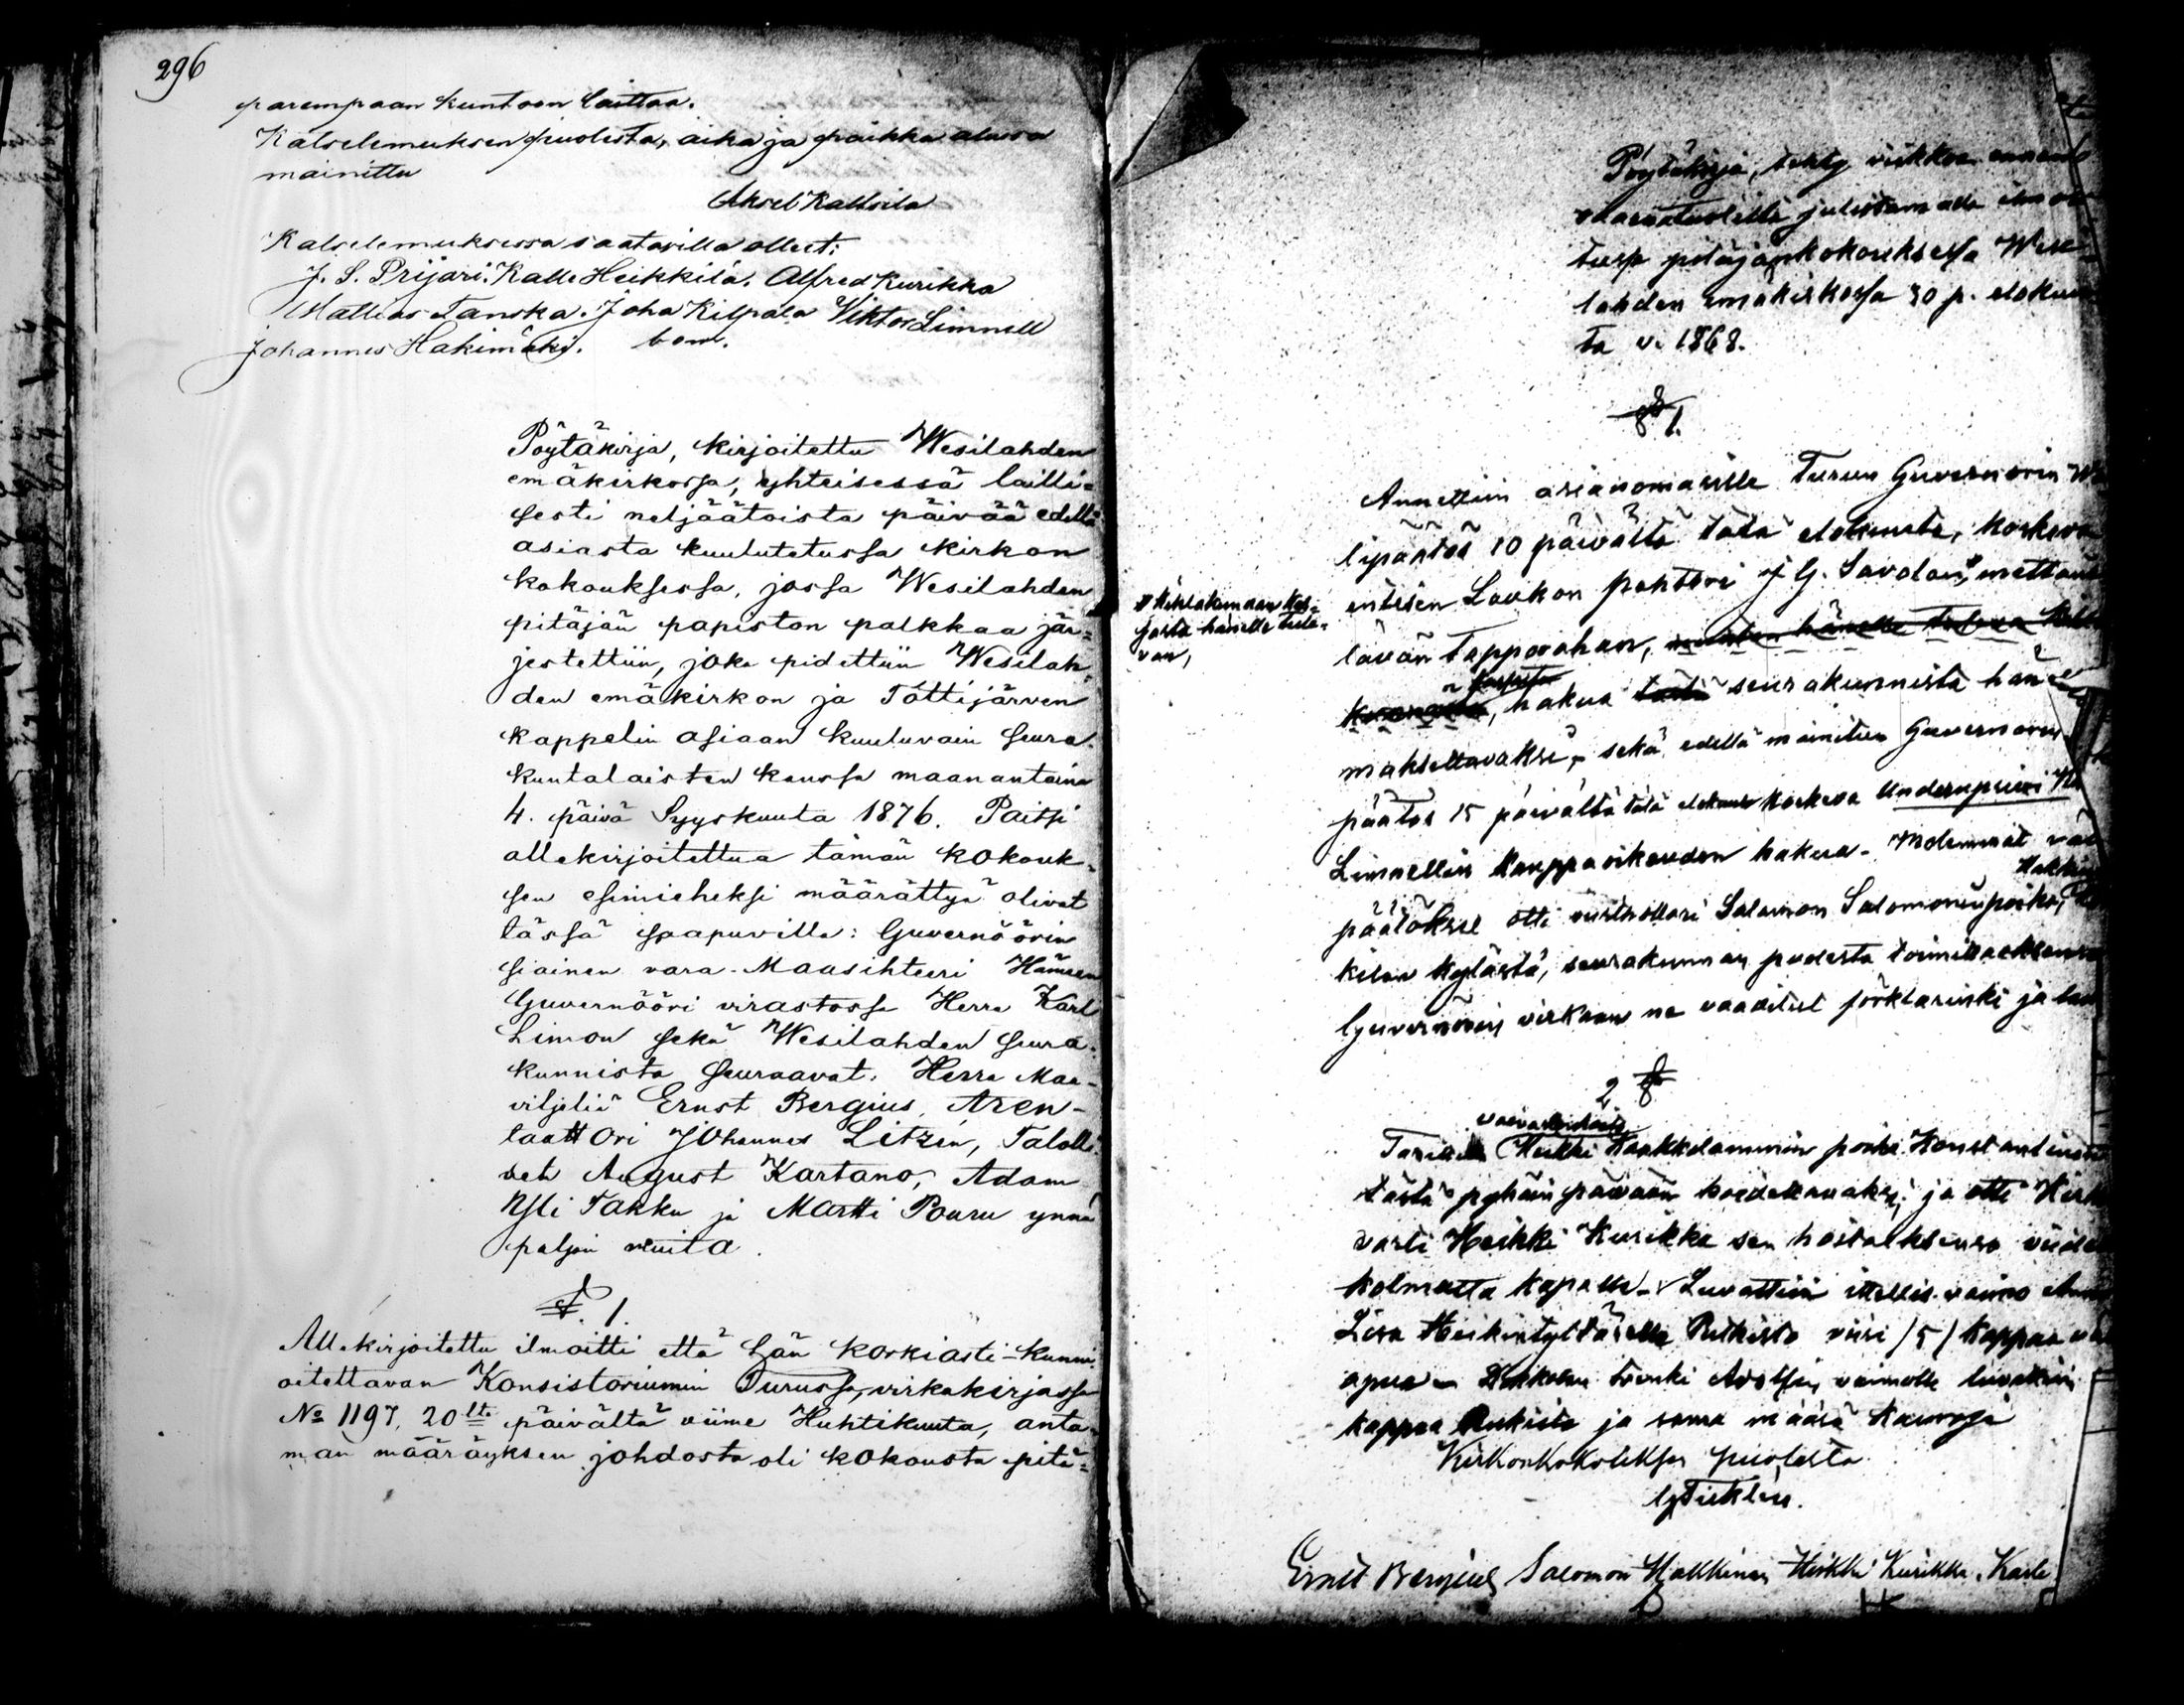 296
parempaan kuntoon laittaa.
Katselemuksen puolesta, aika ja paikka alussa
mainittu
Aksel Kaltsila
Katselemuksessa saatavilla olleet:
J. S. Prijari. Kalle Heikkilä. Alfred Kurikka
Mathias Tanska. Joha Kilpala Viktor Limnell
Johannes Hakimäki. bom.
Pöytäkirja, kirjoitettu Wesilahden
emäkirkossa, yhteisessä lailli-
sesti neljäätoista päivää edellä
asiasta kuulutetussa kirkon
kokouksessa, jossa Wesilahden
pitäjän papiston palkkaa jär-
jestettiin, joka pidettiin Wesilah-
den emäkirkon ja Tottijärven
kappelin asiaan kuuluvain seura-
kuntalaisten kanssa maanantaina
4. päivä Syyskuuta 1876. Paitsi
allekirjoitettua tämän kokouk-
sen esimieheksi määrättyä olivat
tässä saapuvilla: Guvernöörin
siainen vara-Maasihteeri Hämeen
Guvernööri virastossa Herra Karl
Limon sekä Wesilahden seura-
kunnista seuraavat: Herra Maa-
viljeliä Ernst Bergius, Aren-
taattori Johannes Litzén, Talolli-
set August Kartano, Adam
Yli Takku ja Martti Pouru ynnä
paljon muita.
§. 1.
Allekirjoitettu ilmoitti että hän korkiasti-kunni-
oitettavan Konsistoriumin Turussa, virkakirjassa
No 1197, 20lta päivältä viime Huhtikuuta, anta-
man määräyksen johdosta oli kokousta pitä-
Pöytäkirja, tehty viikkoa ennen
saarnatuolilta julistamalla ilmoi
tussa pitäjänkokouksessa Wesi-
lahden emäkirkossa 30 p. elokuu
ta v. 1868.
§ 1.
Annettiin asianomasille Turun Guvernörin Wä
lipäätös 10 päivältä tätä elokuuta, koskeva
entisen Laukon pehtori J. G. Savolan, mettäni
hänelle tule-
van,
tävän Tapporahan, muutan hänelle tuleva
, hakua tästä seurakunnista hän
maksettavaksi, sekä edellä mainitun Guvernörin
päätös 15 päivältä tätä elokuuta koskeva
Limnellin kauppaoikeuden hakua. Molemmat
päätökset otti rusthollari Salamon Salomoninpoika,
kilan kylästä, seurakunnan puolesta toimittaaksensa
Guvernörin virkaan ne vaaditut förklarinki ja
2 §
Heikki poika Konstantin
tästä pyhäinpäivään hoidettavaksi, ja otti Kirk
varti Heikki Kurikka sen hoitaaksensa
kolmatta kapalla. Luvattiin itellis vaimo
Lisa Heikintyttärelle Rukista viisi /5/ kappaa
apua trenki Adolfin vaimolle luvattiin
kappaa Rukista ja sama määrä kauroja
Kirkonkokouksen puolesta
Ernst Bergius Salomon Hakkinen Heikki Kurikka. Karle